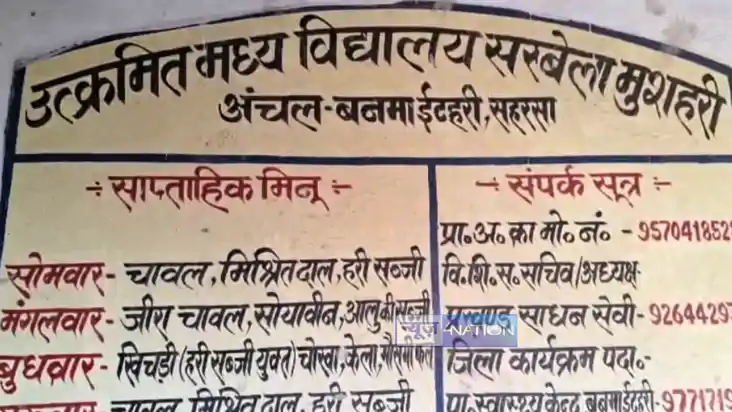 उत्क्रमित मध्य विद्यालय सरबेला मुशहरी
अंचल - बनमा ईटहरी, सहरसा
÷ साप्ताहिक मिनू ÷
सोमवार - चावल, मिश्रित दाल, हरी सब्जी
मंगलवार - जीरा चावल, सोयावीन, आलु की सब्जी
बुधवार - खिचड़ी (हरी सब्जी युक्त) चोखा, केला, मौसमी फल
चावल, मिश्रित दाल, हरी सब्जी
÷ संपर्क सूत्र ÷
प्रा॰ अ॰ का मो॰ नं॰ - 957041852
वि॰ शि॰ स॰ सचिव/अध्यक्ष-
प्रखण्ड साधन सेवी - 9264429
जिला कार्यक्रम पदा॰ -
प्रा॰ स्वास्थ्य केन्द्र बनमाईटहरी - 9771719
न्यूज़ 4NATION